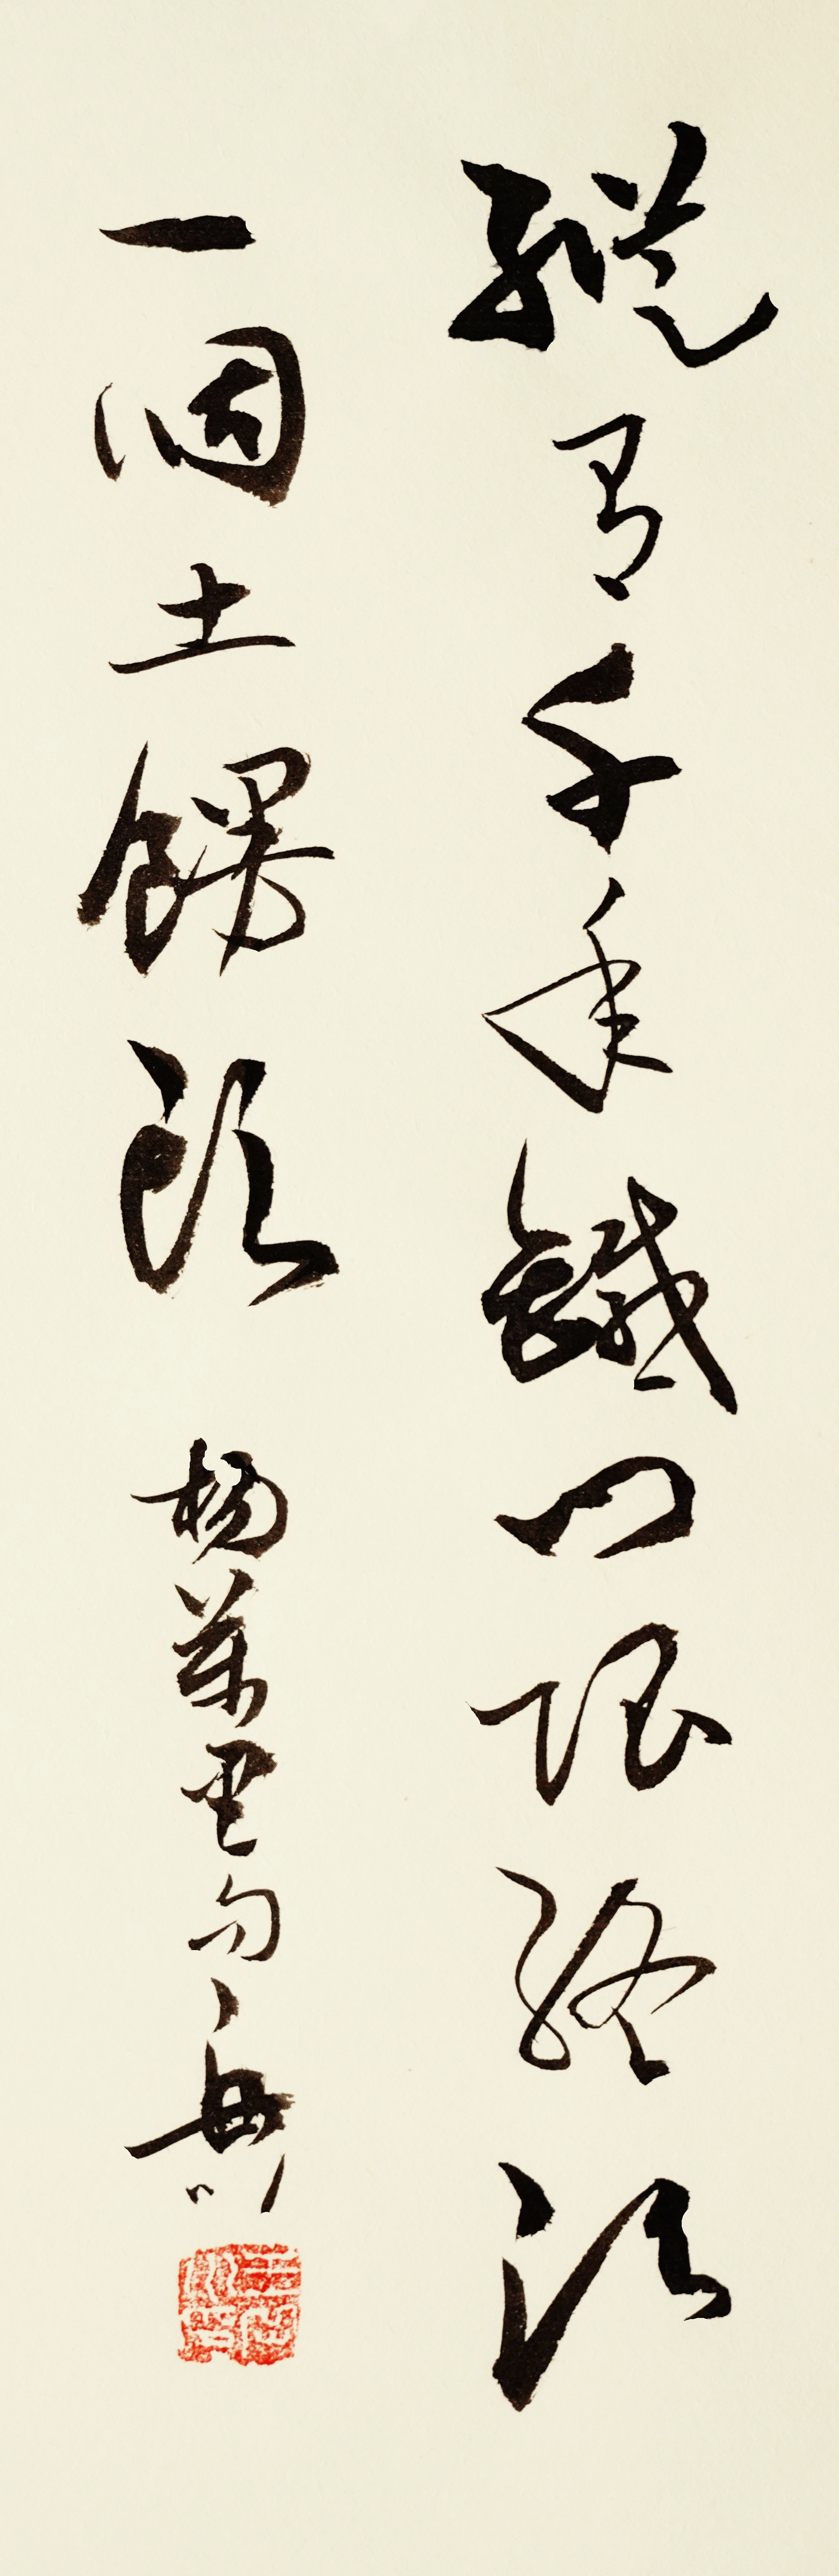 縱有千年鐵門限終須
一個土饅頭 楊萬里句